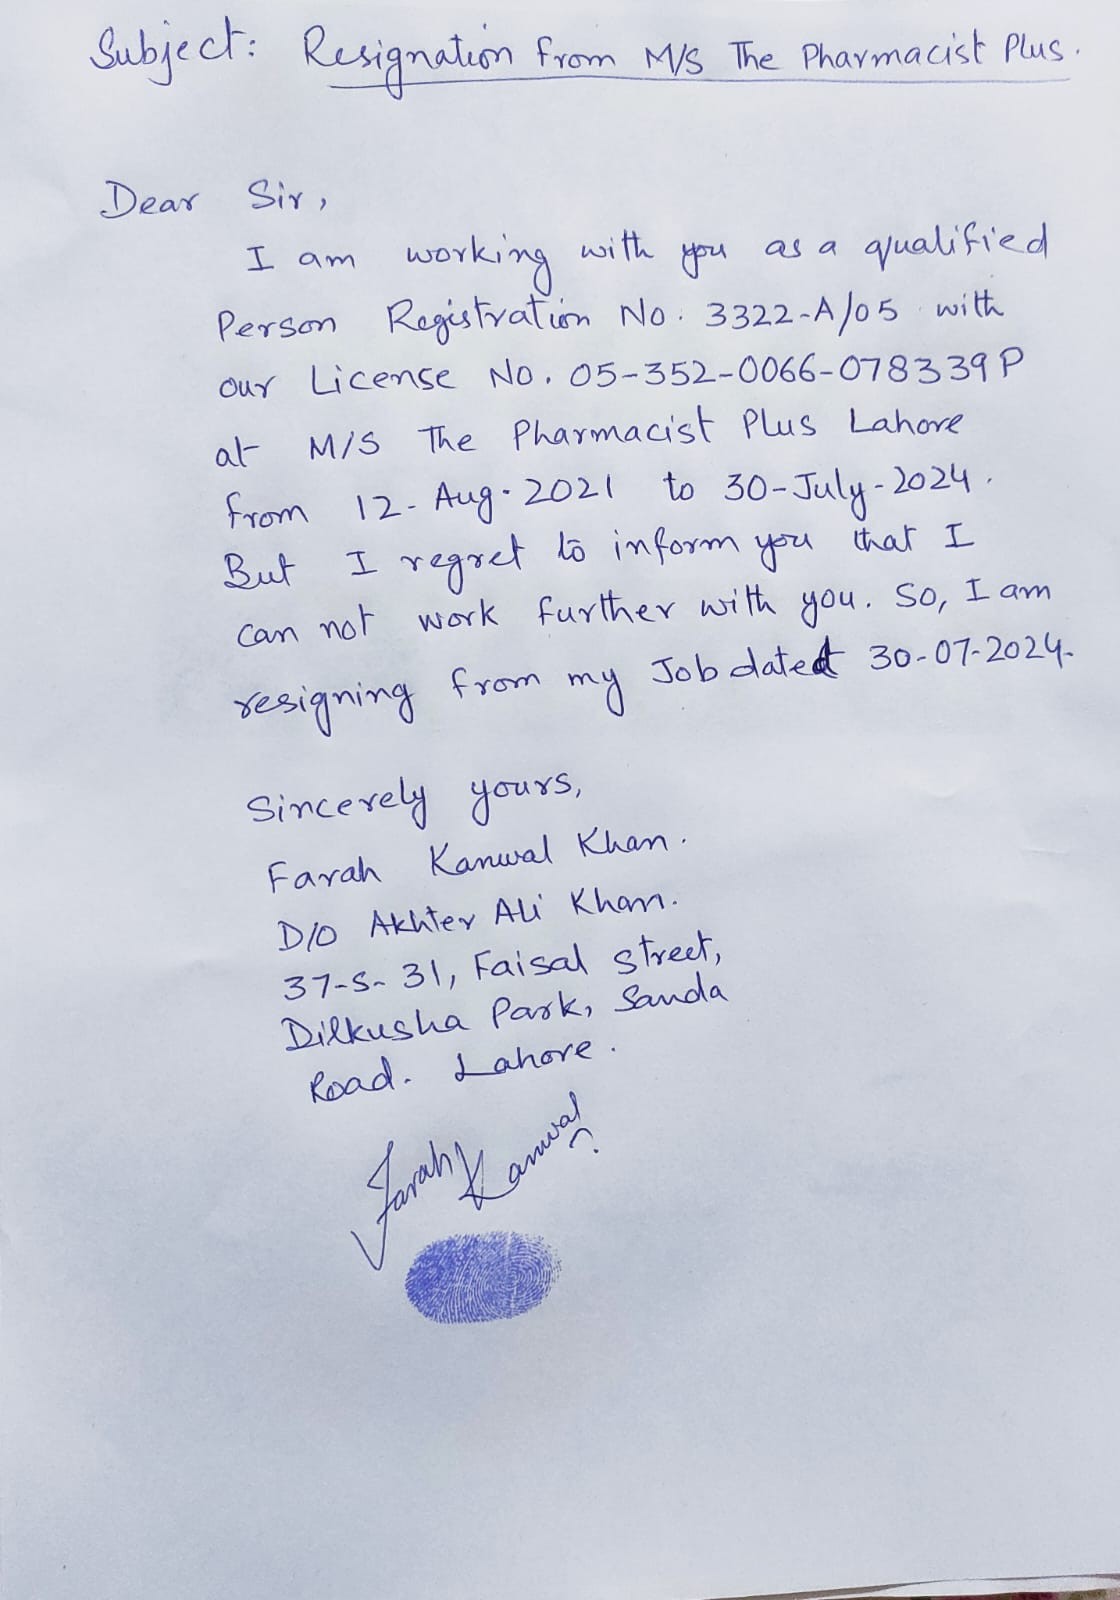 Subject: Resignation from M/S The Pharmacist Plus.
Dear Sir,
I am working with you as a qualified
Person Registration No. 3322-A/05 with
our License No. 05-352-0066-078339P
at M/S The Pharmacist Plus Lahore
from 12-Aug-2021 to 30-July-2024.
But I regret to inform you that I
can not work further with you. So, I am
resigning from my Job dated 30-07-2024.
Sincerely yours,
Farah Kanwal Khan.
D/O Akhter Ali Khan.
37-S-31, Faisal street,
Dilkusha Park, Sanda
Road. Lahore.
Farah Kanwal